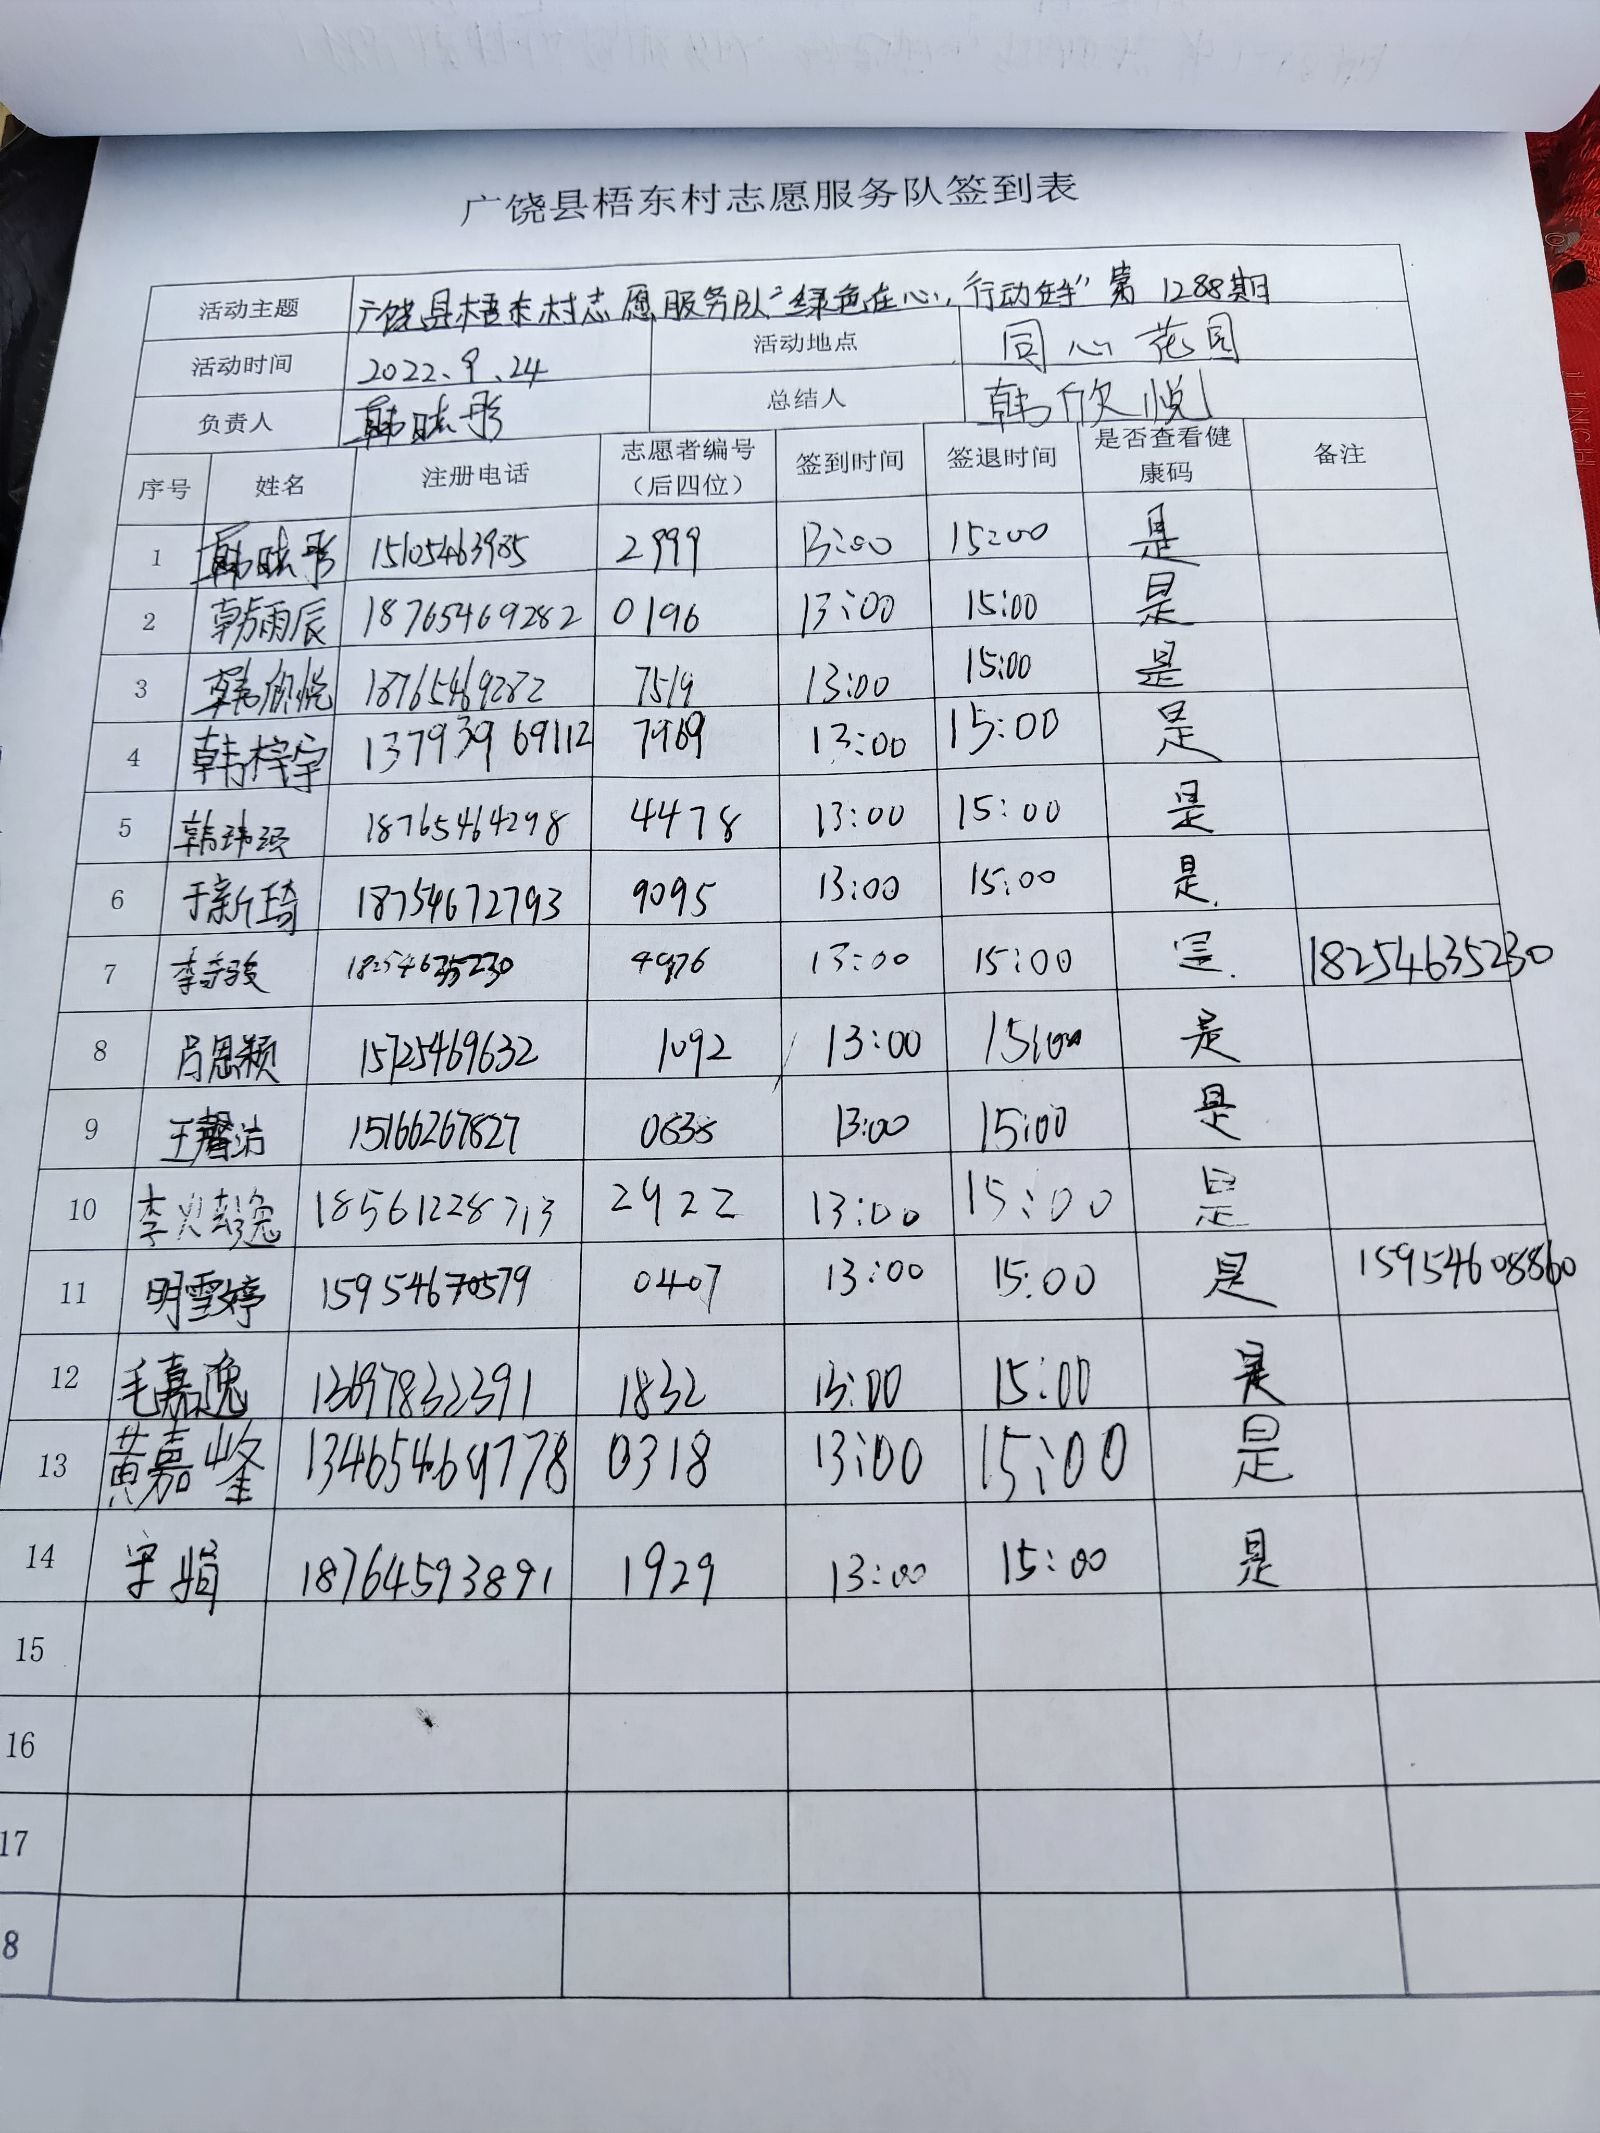 广饶县梧东村志愿服务队签到表
活动主题 广饶县梧东村志愿服务队"绿色在心,行动在手"第1288期
活动时间 2022.9.24 活动地点 同心花园
负责人 韩晓彤 总结人 韩欣悦
序号 姓名 注册电话 志愿者编号(后四位) 签到时间 签退时间 是否查看健康码 备注
1 韩晓彤 15105463985 2999 13:00 15:00 是
2 韩雨辰 18765469282 0196 13:00 15:00 是
3 韩欣悦 18765469282 7519 13:00 15:00 是
4 韩梓宇 13793969112 7969 13:00 15:00 是
5 18765464298 4478 13:00 15:00 是
6 于新琦 18754672793 9095 13:00 15:00 是
7 18254635230 4976 13:00 15:00 是 18254635230
8 吕思颖 15725469632 1092 13:00 15:00 是
9 王馨洁 15166267827 13:00 15:00 是
10 18561228713 2922 13:00 15:00 是
11 明雪婷 15954670579 0407 13:00 15:00 是 15954608860
12 毛嘉逸 13697832391 1832 13:00 15:00 是
13 黄嘉峰 13465469778 0318 13:00 15:00 是
14 宋娟 18764593891 1929 13:00 15:00 是
15
16
17
8